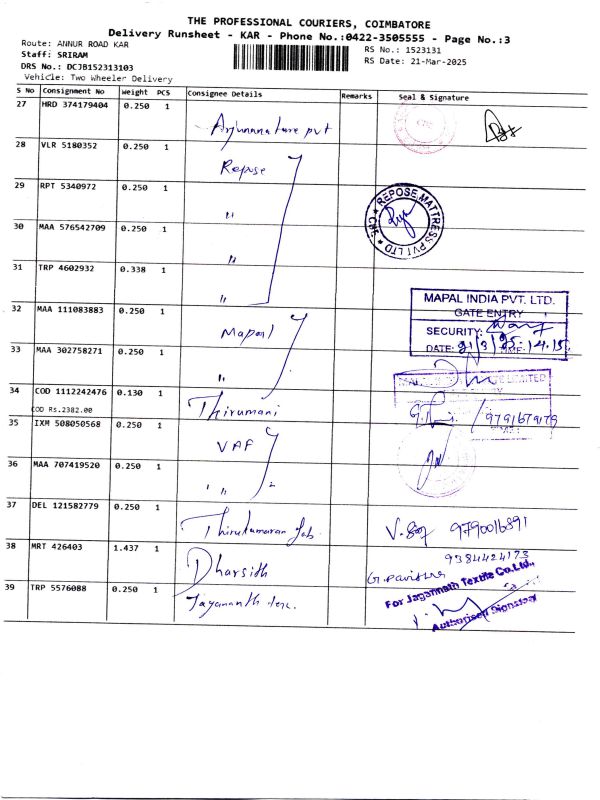 THE PROFESSIONAL COURIERS, COIMBATORE
Delivery Runsheet - KAR - Phone No.:0422-3505555 - Page No.:3
Route: ANNUR ROAD KAR
Staff: SRIRAM
DRS No.: DCJB152313103
Vehicle: Two Wheeler Delivery
RS No.: 1523131
RS Date: 21-Mar-2025
S No Consignment No Weight PCS Consignee Details Remarks Seal & Signature
27 HRD 374179404 0.250 1
28 VLR 5180352 0.250 1 Repose
29 RPT 5340972 0.250 1 "
REPOSE MATTRESS PVT LTD
CBE
30 MAA 576542709 0.250 1 "
31 TRP 4602932 0.338 1 "
MAPAL INDIA PVT. LTD.
GATE ENTRY
32 MAA 111083883 0.250 1 Mapal
SECURITY:
DATE: 21/3/25 TIME: 14.15
33 MAA 302758271 0.250 1 "
34 COD 1112242476 0.130 1 Thirumani
COD Rs.2382.00
9791679179
35 IXM 508050568 0.250 1 VAF
36 MAA 707419520 0.250 1 "
37 DEL 121582779 0.250 1 Thirukumaran fab. 9790016891
38 MRT 426403 1.437 1 Dharsith 9384424173
G. Pavithra
39 TRP 5576088 0.250 1 Jagannath tex.
For Jagannath Textile Co.Ltd.,
Authorised Signatory